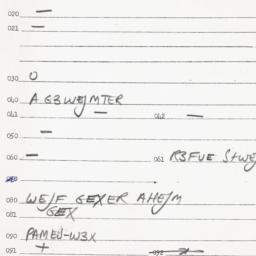 020 —
021 —
030 0
040 A G3WEJMTER
041 — 042 —
050 —
060 — 061 R3FUE
080 WEJF GEXER AHEJM
081 GEX
090 PAMEJ-W3X
091 + 092